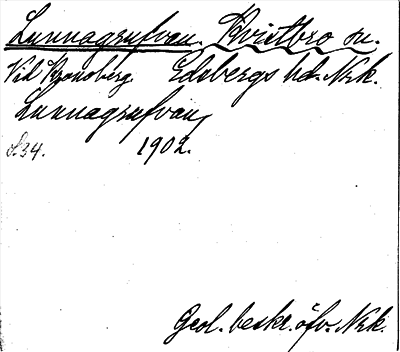 Lunnagrufvan. Kvistbro sn.
Vid Kronoberg. Edsbergs hd. Nrk.
Lunnagrufvan,
s. 34. 1902.
Geol. beskr. öfv. Nrk.